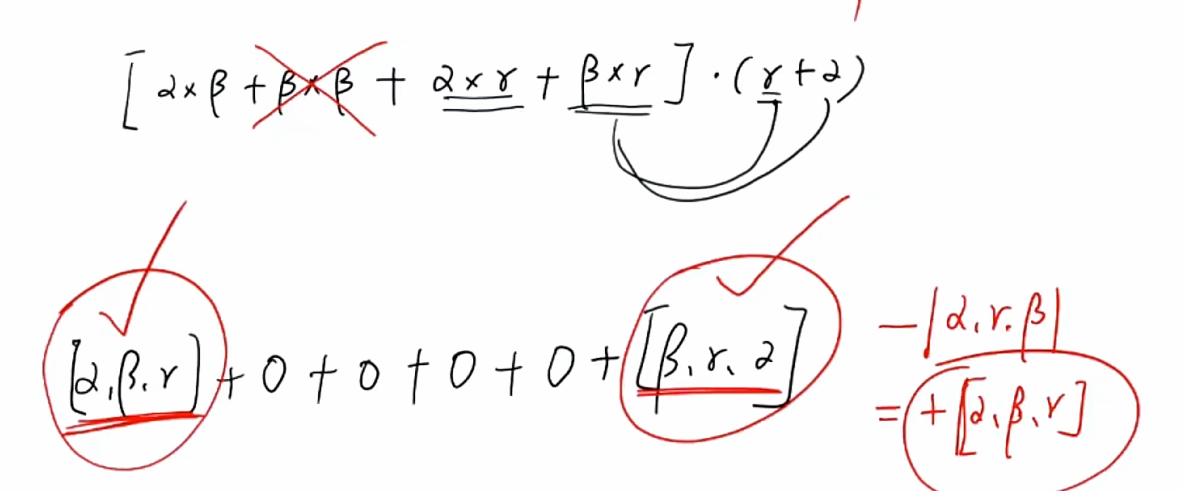 [α×β + β×β + α×γ + β×γ]·(γ+α)
[α,β,γ] + 0 + 0 + 0 + 0 + [β,γ,α]
-|α,γ,β|
= +[α,β,γ]